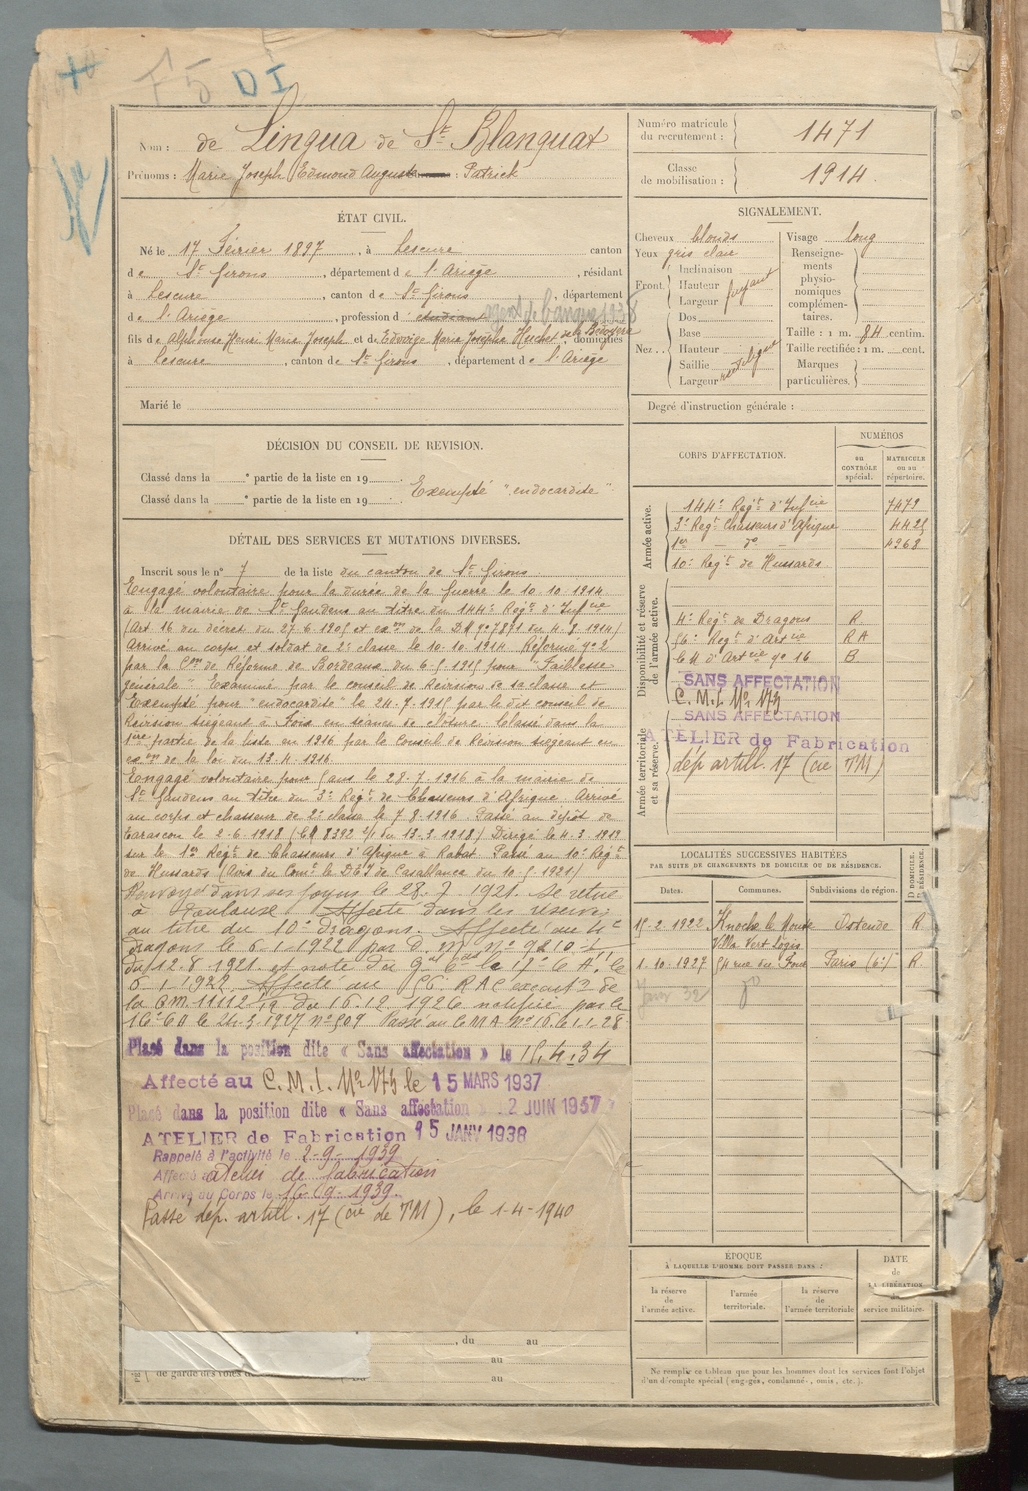 F5 DI
Nom : de Lingua de St Blanquat
Prénoms : Marie Joseph Edmond Auguste : Patrick
Numéro matricule du recrutement : 1471
Classe de mobilisation : 1914.
ÉTAT CIVIL.
Né le 17 Février 1897, à Lescure canton
de St Girons, département de l'Ariège, résidant
à Lescure, canton de St Girons, département
de l'Ariege, profession d étudiant agent de banque 1938
fils de Alphonse Henri Marie Joseph et de Edwige Marie Josèphe, domiciliés
à Lescure, canton de St Girons, département de l'Ariège
Marié le
SIGNALEMENT.
Cheveux blonds
Yeux gris clair
Front. Inclinaison
Hauteur fuyant
Largeur
Nez.. Dos
Base
Hauteur
Saillie
Largeur rectiligne
Visage long
Renseignements physionomiques complémentaires.
Taille : 1 m. 84 centim.
Taille rectifiée : 1 m. cent.
Marques particulières.
Degré d'instruction générale :
DÉCISION DU CONSEIL DE REVISION.
Classé dans la e partie de la liste en 19
Classé dans la e partie de la liste en 19
Exempté "endocardite"
DÉTAIL DES SERVICES ET MUTATIONS DIVERSES.
Inscrit sous le no 7 de la liste du canton de St Girons
Engagé volontaire pour la durée de la Guerre le 10.10.1914
à la mairie de St Gaudens au titre du 144e Regt d'Infie
(Art 16 du décret du 27.6.1905 et de la DM no 7871 du 4.9.1914)
Arrivé au corps et soldat de 2e classe le 10.10.1914 Réformé no 2
par la Con de Réforme de Bordeaux du 6.5.1915 pour "Faiblesse
générale" Examiné par le conseil de Revision de sa classe et
Exempté pour "endocardite" le 24.7.1915 par le dit conseil de
Révision siégeant à Foix en séance de clôture Classé dans la
1ère partie de la liste en 1916 par le Conseil de Révision siégeant en
de la loi du 13.4.1916
Engagé volontaire pour 5 ans le 28.7.1916 à la mairie de
St Gaudens au titre du 3e Regt de Chasseurs d'Afrique Arrivé
au corps et chasseur de 2e classe le 7.8.1916. Passé au dépôt de
Tarascon le 2.6.1918 Dirigé le 4.3.1919
sur le 1er Regt de Chasseurs d'Afrique à Rabat. Passé au 10e Regt
de Hussards (Avis du de Casablanca du 10.5.1921)
Renvoyé dans ses foyers le 28.7.1921. Se retire
à Toulouse. Affecté dans les réserves
au titre du 10e Dragons. Affecté au 4e
dragons le 6-1-1922 par D. M. No
du 12.8.1921. et note du Gal 17e C.A. le
6-1-1922. Affecté au 56e RAC de
la DM. 11112 du 16.12.1926 notifiée par le
le 24.3.1927 No 509 Passé au CMA No 16. le 1.1.28
Placé dans la position dite « Sans affectation » le 15.4.34
Affecté au C.M.I. No 173 le 15 MARS 1937
Placé dans la position dite « Sans affectation » 12 JUIN 1937
ATELIER de Fabrication 15 JANV 1938
Rappelé à l'activité le 2-9-1939
Affecté atelier de fabrication
Arrivé au Corps le 16-09-1939.
Passé dép. artill. 17 (cie de TM), le 1-4-1940
, du au
au
de garde des voies de
au
CORPS D'AFFECTATION.
NUMÉROS
au CONTRÔLE spécial.
MATRICULE ou au répertoire.
Armée active.
144e Regt d'Infie 7479
3e Regt Chasseurs d'Afrique 4425
1er — do — 4968
10e Regt de Hussards
Disponibilité et réserve de l'armée active.
4e Regt de Dragons R.
56e Regt d'Artie RA
CM d'Artie no 16 B
SANS AFFECTATION
C.M.I. No 173
SANS AFFECTATION
Armée territoriale et sa réserve.
ATELIER de Fabrication
dép artill. 17 (cie TM)
LOCALITÉS SUCCESSIVES HABITÉES
PAR SUITE DE CHANGEMENTS DE DOMICILE OU DE RÉSIDENCE.
Dates. Communes. Subdivisions de région. D DOMICILE. R RÉSIDENCE.
15-2-1922 Knocke le Zoute Ostende R
Villa Vert Logis
1-10-1927 54 rue du Four Paris (6e) R
ÉPOQUE
À LAQUELLE L'HOMME DOIT PASSER DANS :
la réserve de l'armée active.
l'armée territoriale.
la réserve de l'armée territoriale
DATE de LA LIBÉRATION du service militaire.
Ne remplir ce tableau que pour les hommes dont les services font l'objet
d'un décompte spécial (engagés, condamnés, omis, etc.).